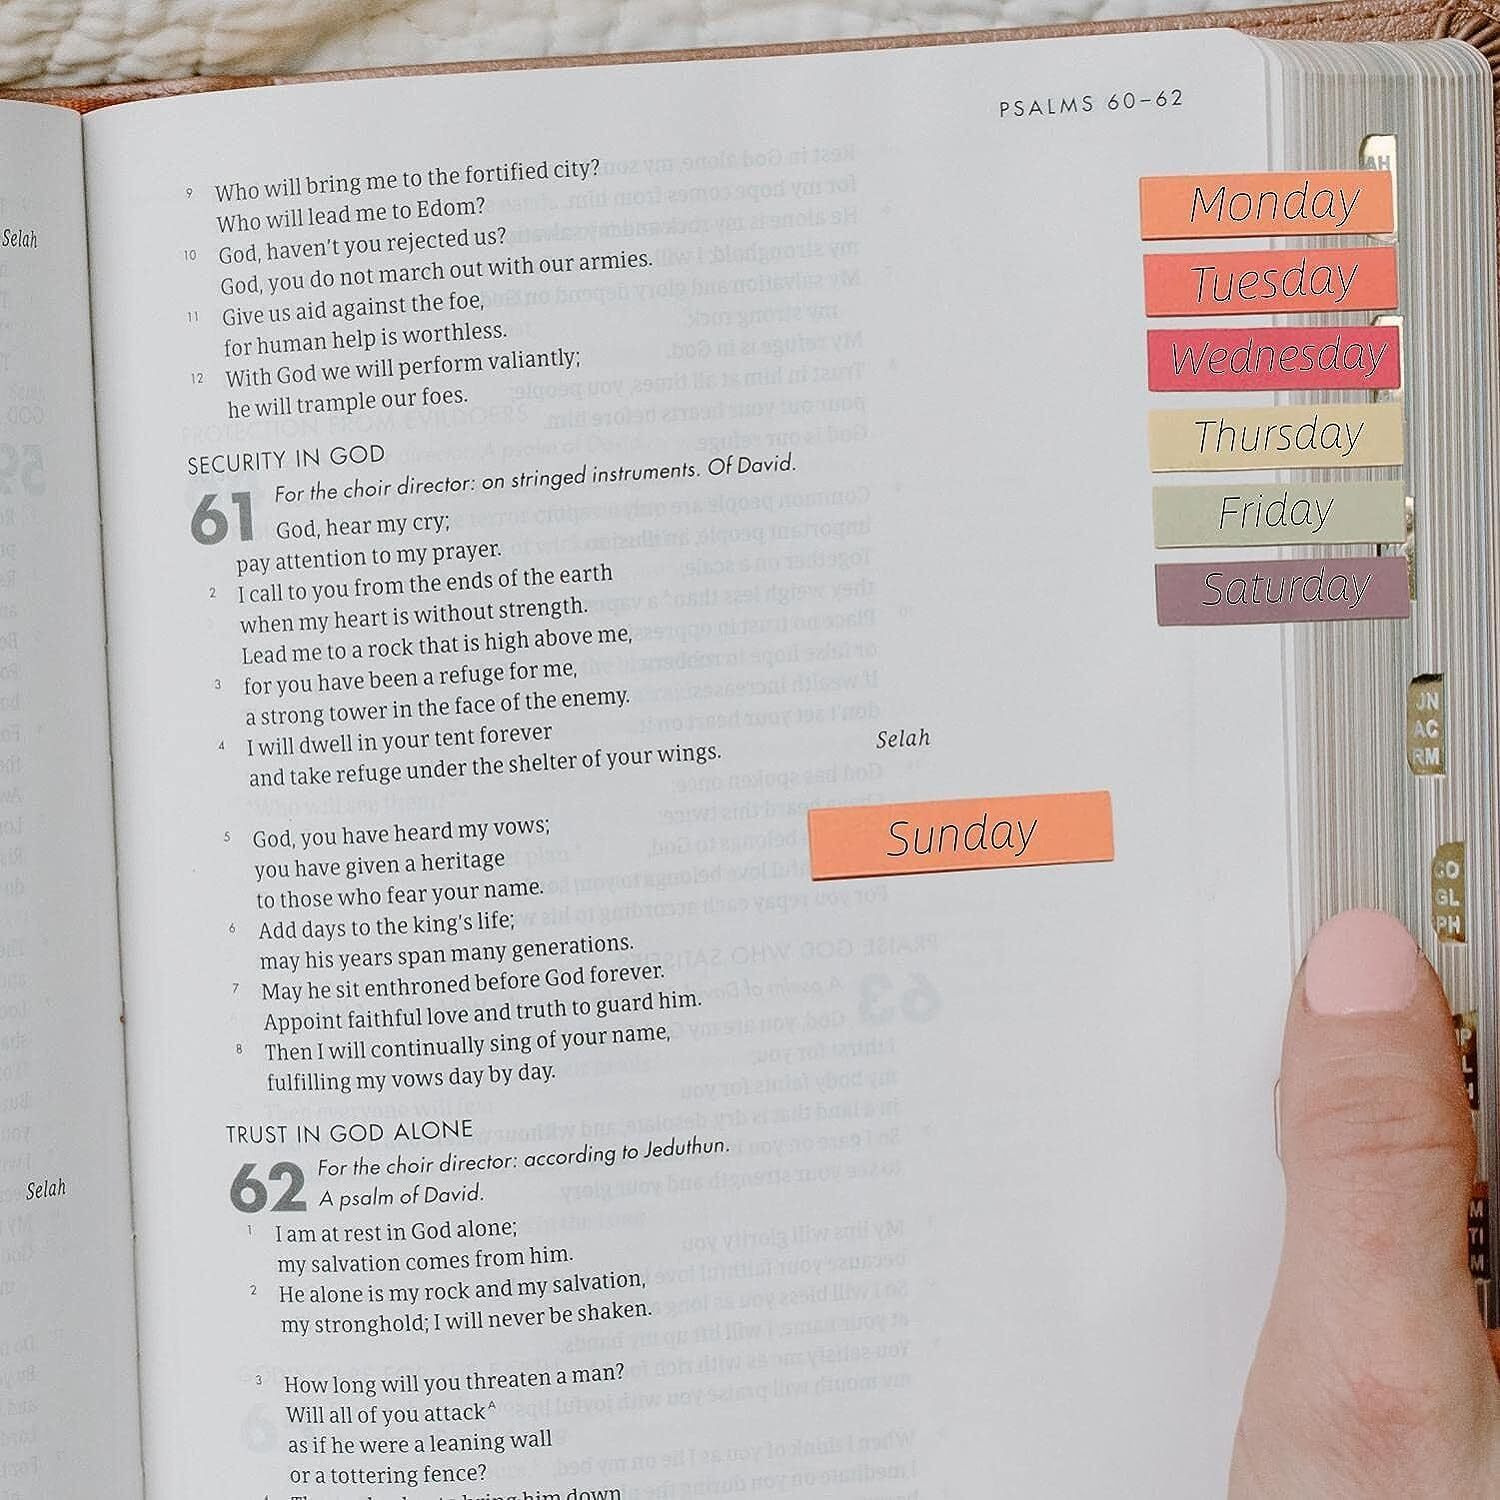 PSALMS 60–62
Selah
9 Who will bring me to the fortified city?
Who will lead me to Edom?
10 God, haven't you rejected us?
God, you do not march out with our armies.
11 Give us aid against the foe,
for human help is worthless.
12 With God we will perform valiantly;
he will trample our foes.
SECURITY IN GOD
61 For the choir director: on stringed instruments. Of David.
God, hear my cry;
pay attention to my prayer.
2 I call to you from the ends of the earth
when my heart is without strength.
Lead me to a rock that is high above me,
3 for you have been a refuge for me,
a strong tower in the face of the enemy.
4 I will dwell in your tent forever
and take refuge under the shelter of your wings. Selah
5 God, you have heard my vows;
you have given a heritage
to those who fear your name.
6 Add days to the king's life;
may his years span many generations.
7 May he sit enthroned before God forever.
Appoint faithful love and truth to guard him.
8 Then I will continually sing of your name,
fulfilling my vows day by day.
TRUST IN GOD ALONE
62 For the choir director: according to Jeduthun.
A psalm of David.
Selah
1 I am at rest in God alone;
my salvation comes from him.
2 He alone is my rock and my salvation,
my stronghold; I will never be shaken.
3 How long will you threaten a man?
Will all of you attack^A
as if he were a leaning wall
or a tottering fence?
him down
Monday
Tuesday
Wednesday
Thursday
Friday
Saturday
Sunday
AH
JN
AC
RM
CO
GL
PH